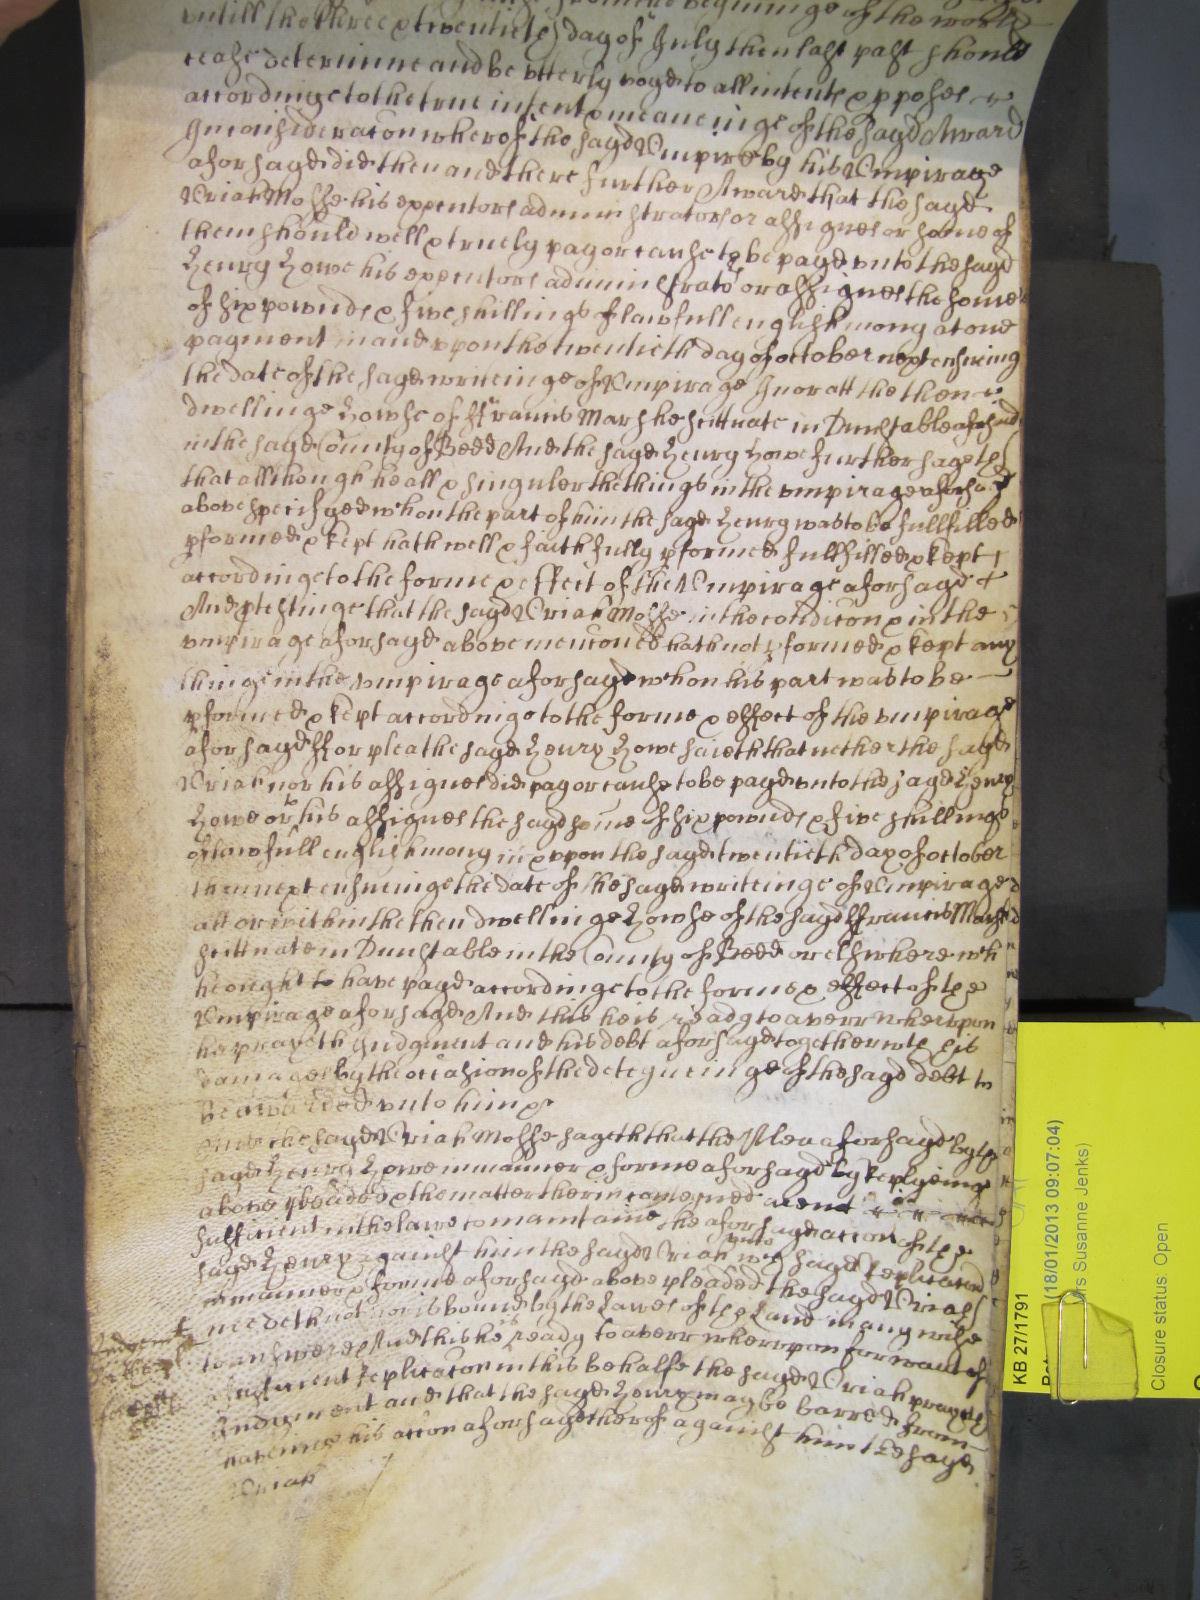 from the beginninge of the world
untill the three & twentieth day of July then last past should
cease determine and be utterly voyd to all intents & pposes
accordinge to the true intent & meaneinge of the sayd Award
In consideracon wherof the sayd Umpire by his Umpirage
aforsayd did then and there further Award that the sayd
Uriah Mosse his executors administrators or assignes or some of
them should well & truely pay or cause to be payd unto the sayd
Henry Howe his executors administrators or assignes the some
of six pownds & five shillings of lawfull english mony at one
payment in and uppon the twentieth day of october next ensueing
the date of the sayd writeinge of Umpirage In or att the then
dwellinge howse of ffrancis Marshe scittuate in Dunstable aforsayd
in the sayd County of Bedd And the sayd Henry Howe further sayeth
that allthough he all & singuler the things in the umpirage aforsayd
above specifyed wch on the part of him the sayd Henry was to be fullfilled
pformed & kept hath well & faithfully pformed fullfilled & kept
accordinge to the forme & effect of the Umpirage aforsayd
And ptestinge that the sayd Uriah Mosse in the condicon & in the
umpirage aforsayd above mencioned hath not pformed & kept any
thinge in the umpirage aforsayd wch on his part was to be
pformed & kept accordinge to the forme & effect of the umpirage
aforsayd ffor plea the sayd Henry Howe saieth that nether the sayd
Uriah nor his assignes did pay or cause to be payd unto the sayd Henry
Howe or his assignes the sayd some of six pownds & five shillings
of lawfull english mony in & uppon the sayd twentieth day of october
then next ensueinge the date of the sayd writeinge of Umpirage
att or within the then dwellinge howse of the sayd ffrancis Marshe
scittuate in Dunstable in the County of Bedd or elswhere wch
he ought to have payd accordinge to the forme & effect of the
Umpirage aforsayd And this he is ready to averr wherupon
he prayeth Judgment and his debt aforsayd together wth his
damages by the occasion of the deteyneinge of the sayd debt to
be awarded unto him &c
And the sayd Uriah Mosse sayeth that the Plea aforsayd by the
sayd Henry Howe in manner & forme aforsayd by Replyeinge
above pleaded & the matter therin conteyned are not
sufficient in the lawe to maintaine the aforsayd accon of the
sayd Henry against him the sayd Uriah unto wch sayd Replicacon
in manner & forme aforsayd above pleaded the sayd Uriah
needeth not nor is bound by the Lawes of the Land in any wise
to answere And this he is ready to averr wherupon for want of
a sufficient Replicacon in this behalfe the sayd Uriah prayeth
Judgment and that the sayd Henry may be barred from
haveinge his accon aforsayd therof against him the sayd
Uriah
Judgment
for the
KB 27/1791
(18/01/2013 09:07:04)
Mrs Susanne Jenks)
Closure status: Open